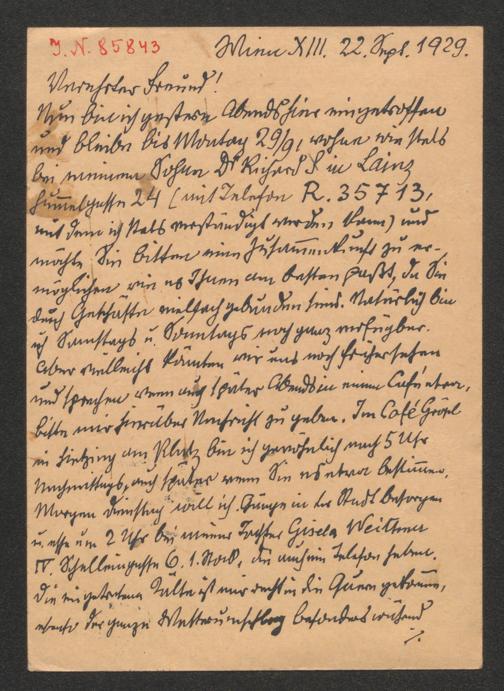 J. N. 85843
Wien XIII. 22. Sept. 1929.
Verehrter Freund!
Nun bin ich gestern Abends hier eingetroffen
und bleibe bis Montag 29/9, wohne wie stets
bei meinem Sohne Dr Richard S. in Lainz
Hummelgasse 24 (mit Telefon R. 35713,
mit dem ich stets verständigt werden kann) und
möchte Sie bitten eine Zusammenkunft zu er-
möglichen wie es Ihnen am besten paßt, da Sie
durch Geschäfte vielfach gebunden sind. Natürlich bin
ich Samstags u. Sonntags noch ganz verfügbar.
Aber vielleicht könnten wir uns noch früher sehen
und sprechen wenn auch später Abends in einem Café etwa,
bitte mir hierüber Nachricht zu geben. Im Café Gröpl
in Hietzing am Platz bin ich gewöhnlich nach 5 Uhr
Nachmittags, auch später wenn Sie es etwa bestimmen.
Morgen Dienstag will ich Gänge in der Stadt besorgen
u. esse um 2 Uhr bei meiner Tochter Gisela
IV. Schelleingasse 6. 1. Stock, die auch ein Telefon haben.
Die eingetretene Kälte ist mir recht in die Quere gekommen,
ebenso der ganze Wetterumschlag besonders während